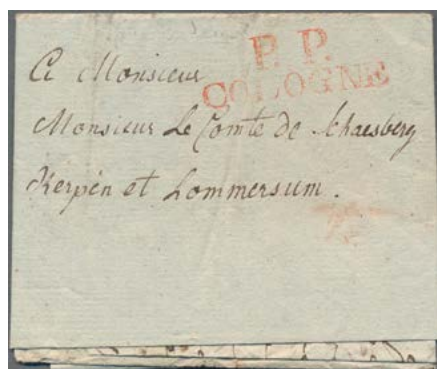 P. P.
COLOGNE
A Monsieur
Monsieur Le Comte de Schaesberg
Kerpén et Lommersum.